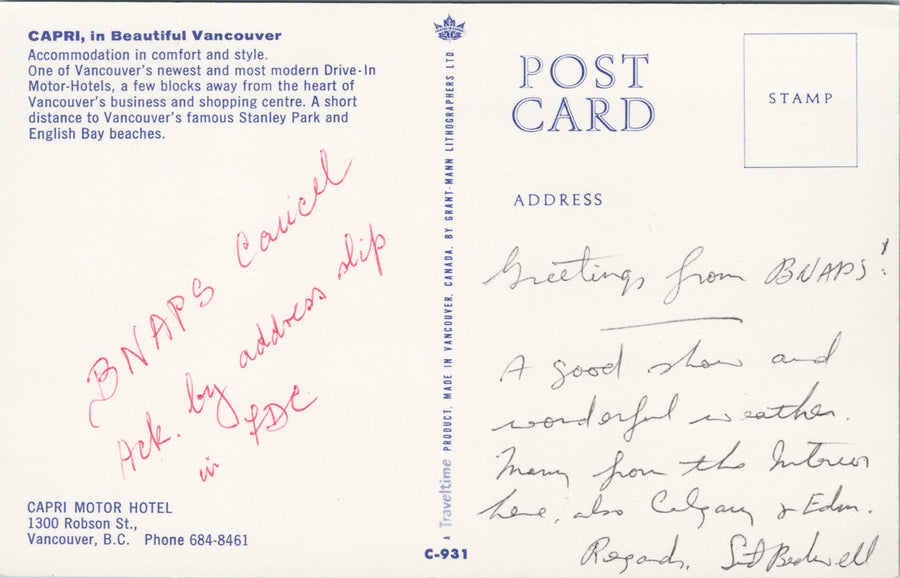 CAPRI, in Beautiful Vancouver
Accommodation in comfort and style.
One of Vancouver's newest and most modern Drive-In
Motor-Hotels, a few blocks away from the heart of
Vancouver's business and shopping centre. A short
distance to Vancouver's famous Stanley Park and
English Bay beaches.
BNAPS Cancel
Ack. by address slip
in FDC.
CAPRI MOTOR HOTEL
1300 Robson St.,
Vancouver, B.C. Phone 684-8461
A Traveltime PRODUCT, MADE IN VANCOUVER, CANADA, BY GRANT-MANN LITHOGRAPHERS LTD.
C-931
POST
CARD
STAMP
ADDRESS
Greetings from BNAPS!
A good show and
wonderful weather.
Many from the Interior
here, also Calgary & Edm.
Regards,